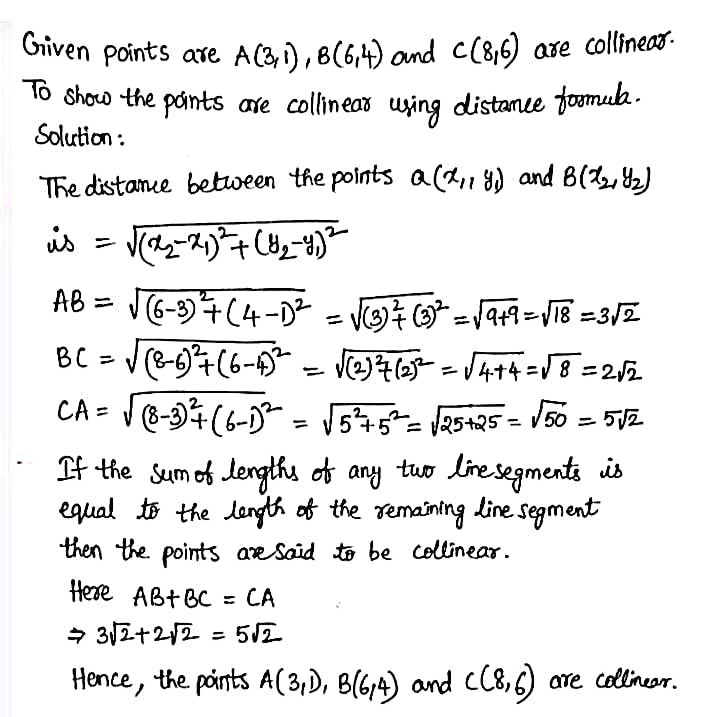 Given points are A(3,1), B(6,4) and C(8,6) are collinear.
To show the points are collinear using distance formula.
Solution:
The distance between the points a(x₁, y₁) and B(x₂, y₂)
is = √(x₂-x₁)²+(y₂-y₁)²
AB = √(6-3)²+(4-1)² = √(3)²+(3)² = √9+9 = √18 = 3√2
BC = √(8-6)²+(6-4)² = √(2)²+(2)² = √4+4 = √8 = 2√2
CA = √(8-3)²+(6-1)² = √5²+5² = √25+25 = √50 = 5√2
If the sum of lengths of any two line segments is
equal to the length of the remaining line segment
then the points are said to be collinear.
Here AB+BC = CA
⇒ 3√2+2√2 = 5√2
Hence, the points A(3,1), B(6,4) and C(8,6) are collinear.